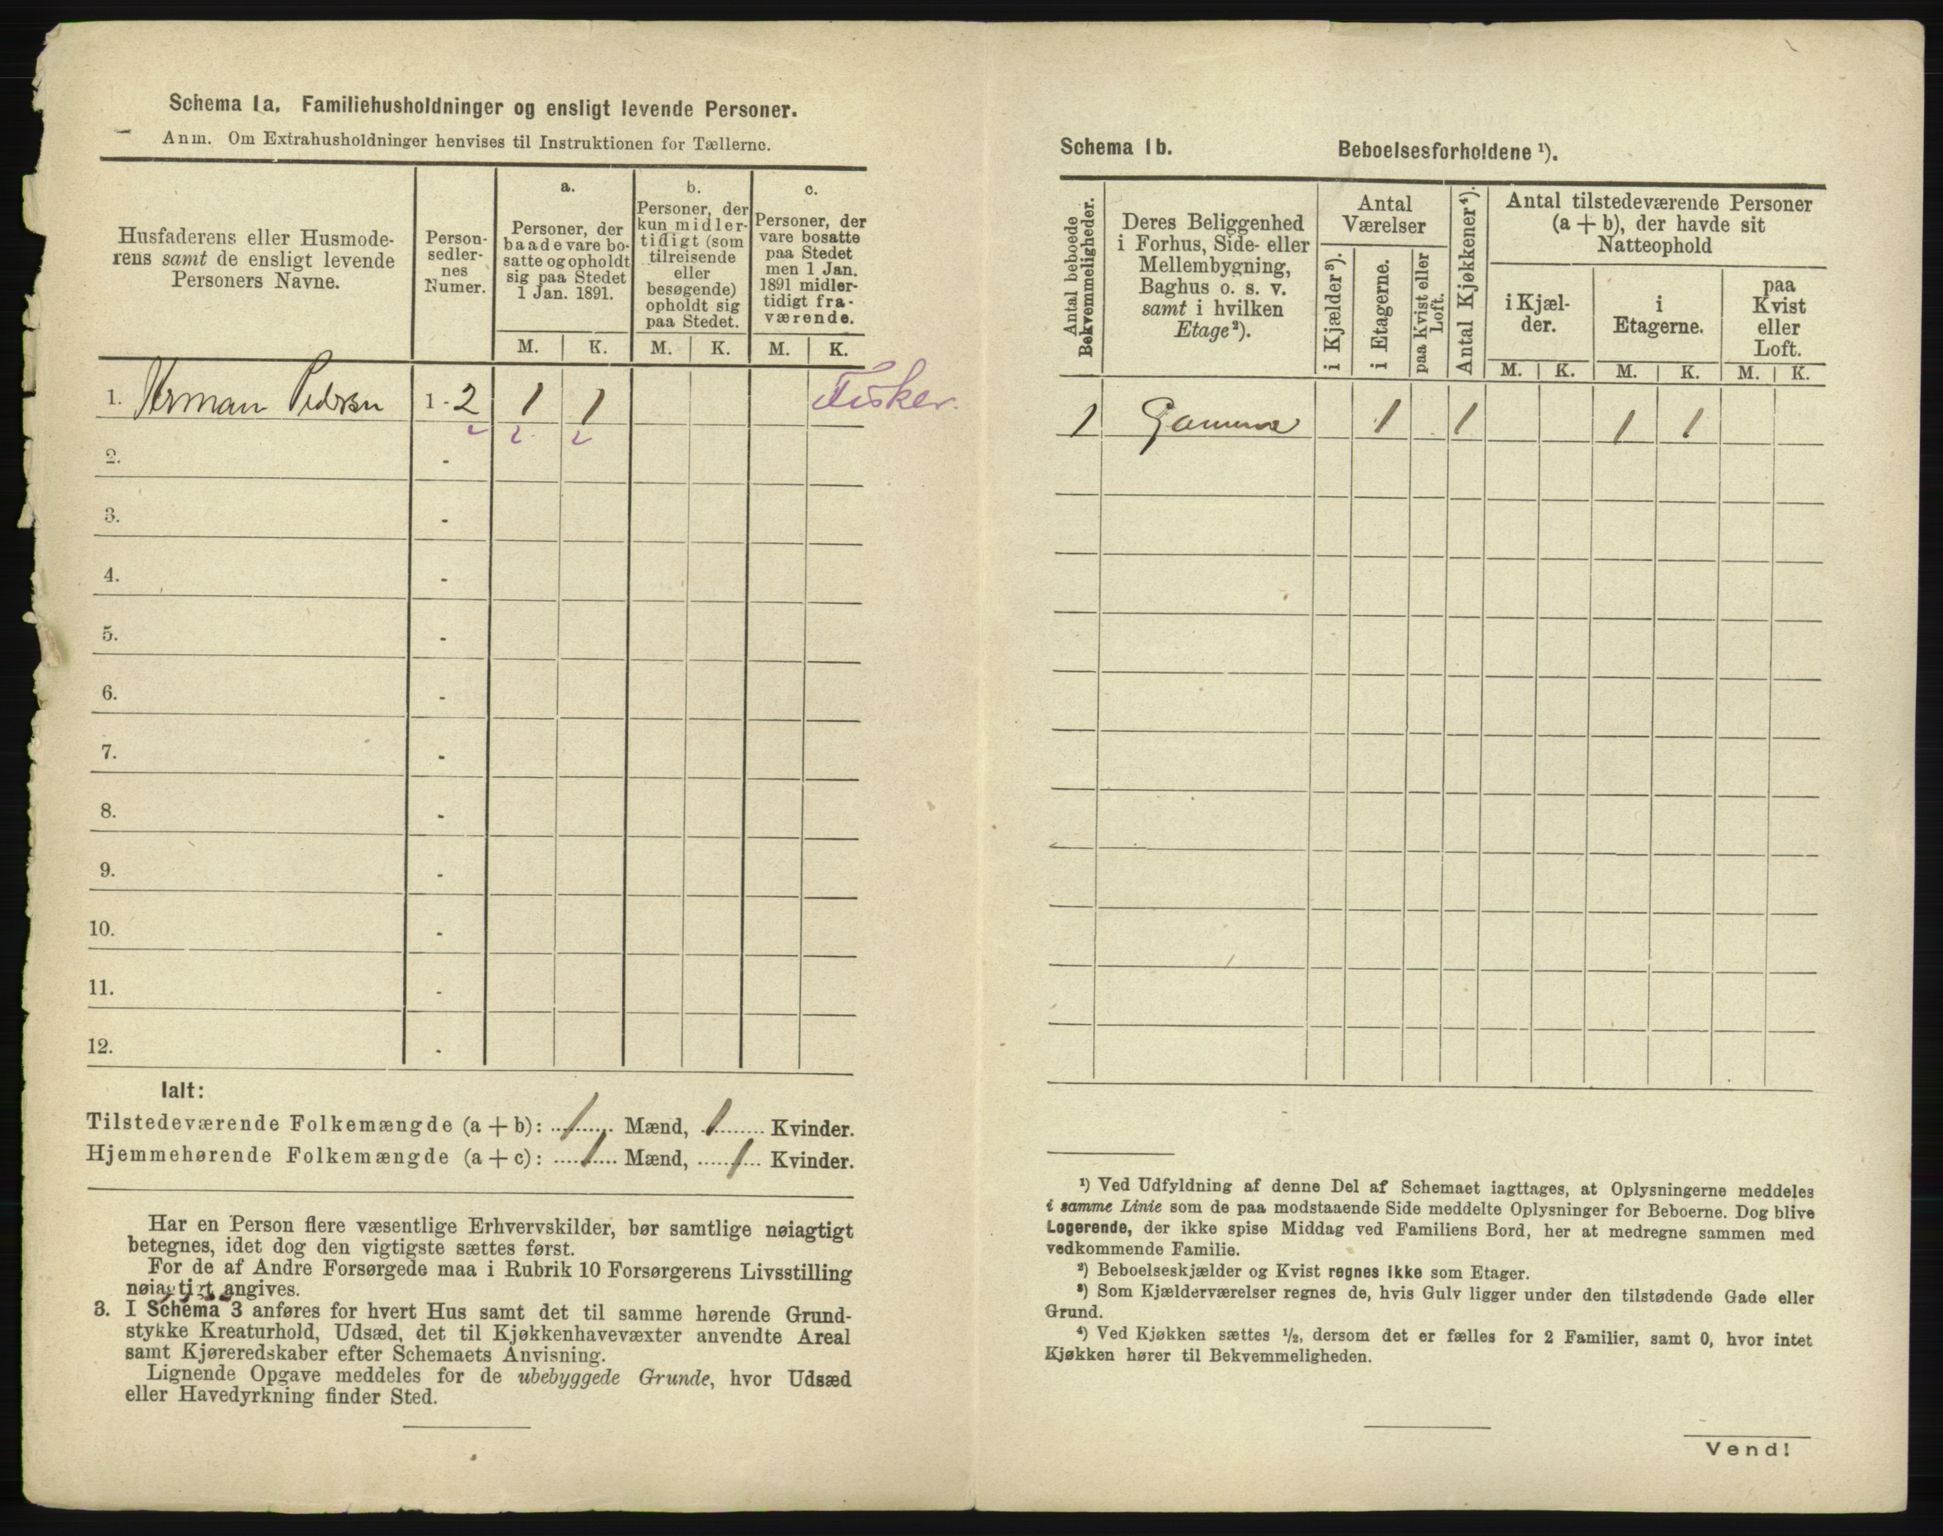 Schema 1a. Familiehusholdninger og ensligt levende Personer.
Anm. Om Extrahusholdninger henvises til Instruktionen for Tællerne.
Husfaderens eller Husmode-
rens samt de ensligt levende
Personers Navne.
Person-
sedler-
nes
Numer.
a.
Personer, der
baade vare bo-
satte og opholdt
sig paa Stedet
1 Jan. 1891.
b.
Personer, der
kun midler-
tidigt (som
tilreisende
eller
besøgende)
opholdt sig
paa Stedet.
c.
Personer, der
vare bosatte
paa Stedet
men 1 Jan.
1891 midler-
tidigt fra-
værende.
M. K. M. K. M. K.
1. Herman Pedersen 1 - 2 1 1 Fisker.
2 2 2
2. -
3. -
4. -
5. -
6. -
7. -
8. -
9. -
10. -
11. -
12. -
Ialt:
Tilstedeværende Folkemængde (a + b): 1 Mænd, 1 Kvinder.
Hjemmehørende Folkemængde (a + c): 1 Mænd, 1 Kvinder.
Har en Person flere væsentlige Erhvervskilder, bør samtlige nøiagtigt
betegnes, idet dog den vigtigste sættes først.
For de af Andre Forsørgede maa i Rubrik 10 Forsørgerens Livsstilling
nøiagtigt angives.
3. I Schema 3 anføres for hvert Hus samt det til samme hørende Grund-
stykke Kreaturhold, Udsæd, det til Kjøkkenhavevæxter anvendte Areal
samt Kjøreredskaber efter Schemaets Anvisning.
Lignende Opgave meddeles for de ubebyggede Grunde, hvor Udsæd
eller Havedyrkning finder Sted.
Schema 1b. Beboelsesforholdene ¹).
Antal beboede
Bekvemmeligheder.
Deres Beliggenhed
i Forhus, Side- eller
Mellembygning,
Baghus o. s. v.
samt i hvilken
Etage ²).
Antal
Værelser
i Kjælder ³).
i Etagerne.
paa Kvist eller
Loft.
Antal Kjøkkener ⁴).
Antal tilstedeværende Personer
(a + b), der havde sit
Natteophold
i Kjæl-
der.
i
Etagerne.
paa
Kvist
eller
Loft.
M. K. M. K. M. K.
1 Gamme 1 1 1 1
¹) Ved Udfyldning af denne Del af Schemaet iagttages, at Oplysningerne meddeles
i samme Linie som de paa modstaaende Side meddelte Oplysninger for Beboerne. Dog blive
Logerende, der ikke spise Middag ved Familiens Bord, her at medregne sammen med
vedkommende Familie.
²) Beboelseskjælder og Kvist regnes ikke som Etager.
³) Som Kjælderværelser regnes de, hvis Gulv ligger under den tilstødende Gade eller
Grund.
⁴) Ved Kjøkken sættes ½, dersom det er fælles for 2 Familier, samt 0, hvor intet
Kjøkken hører til Bekvemmeligheden.
Vend!